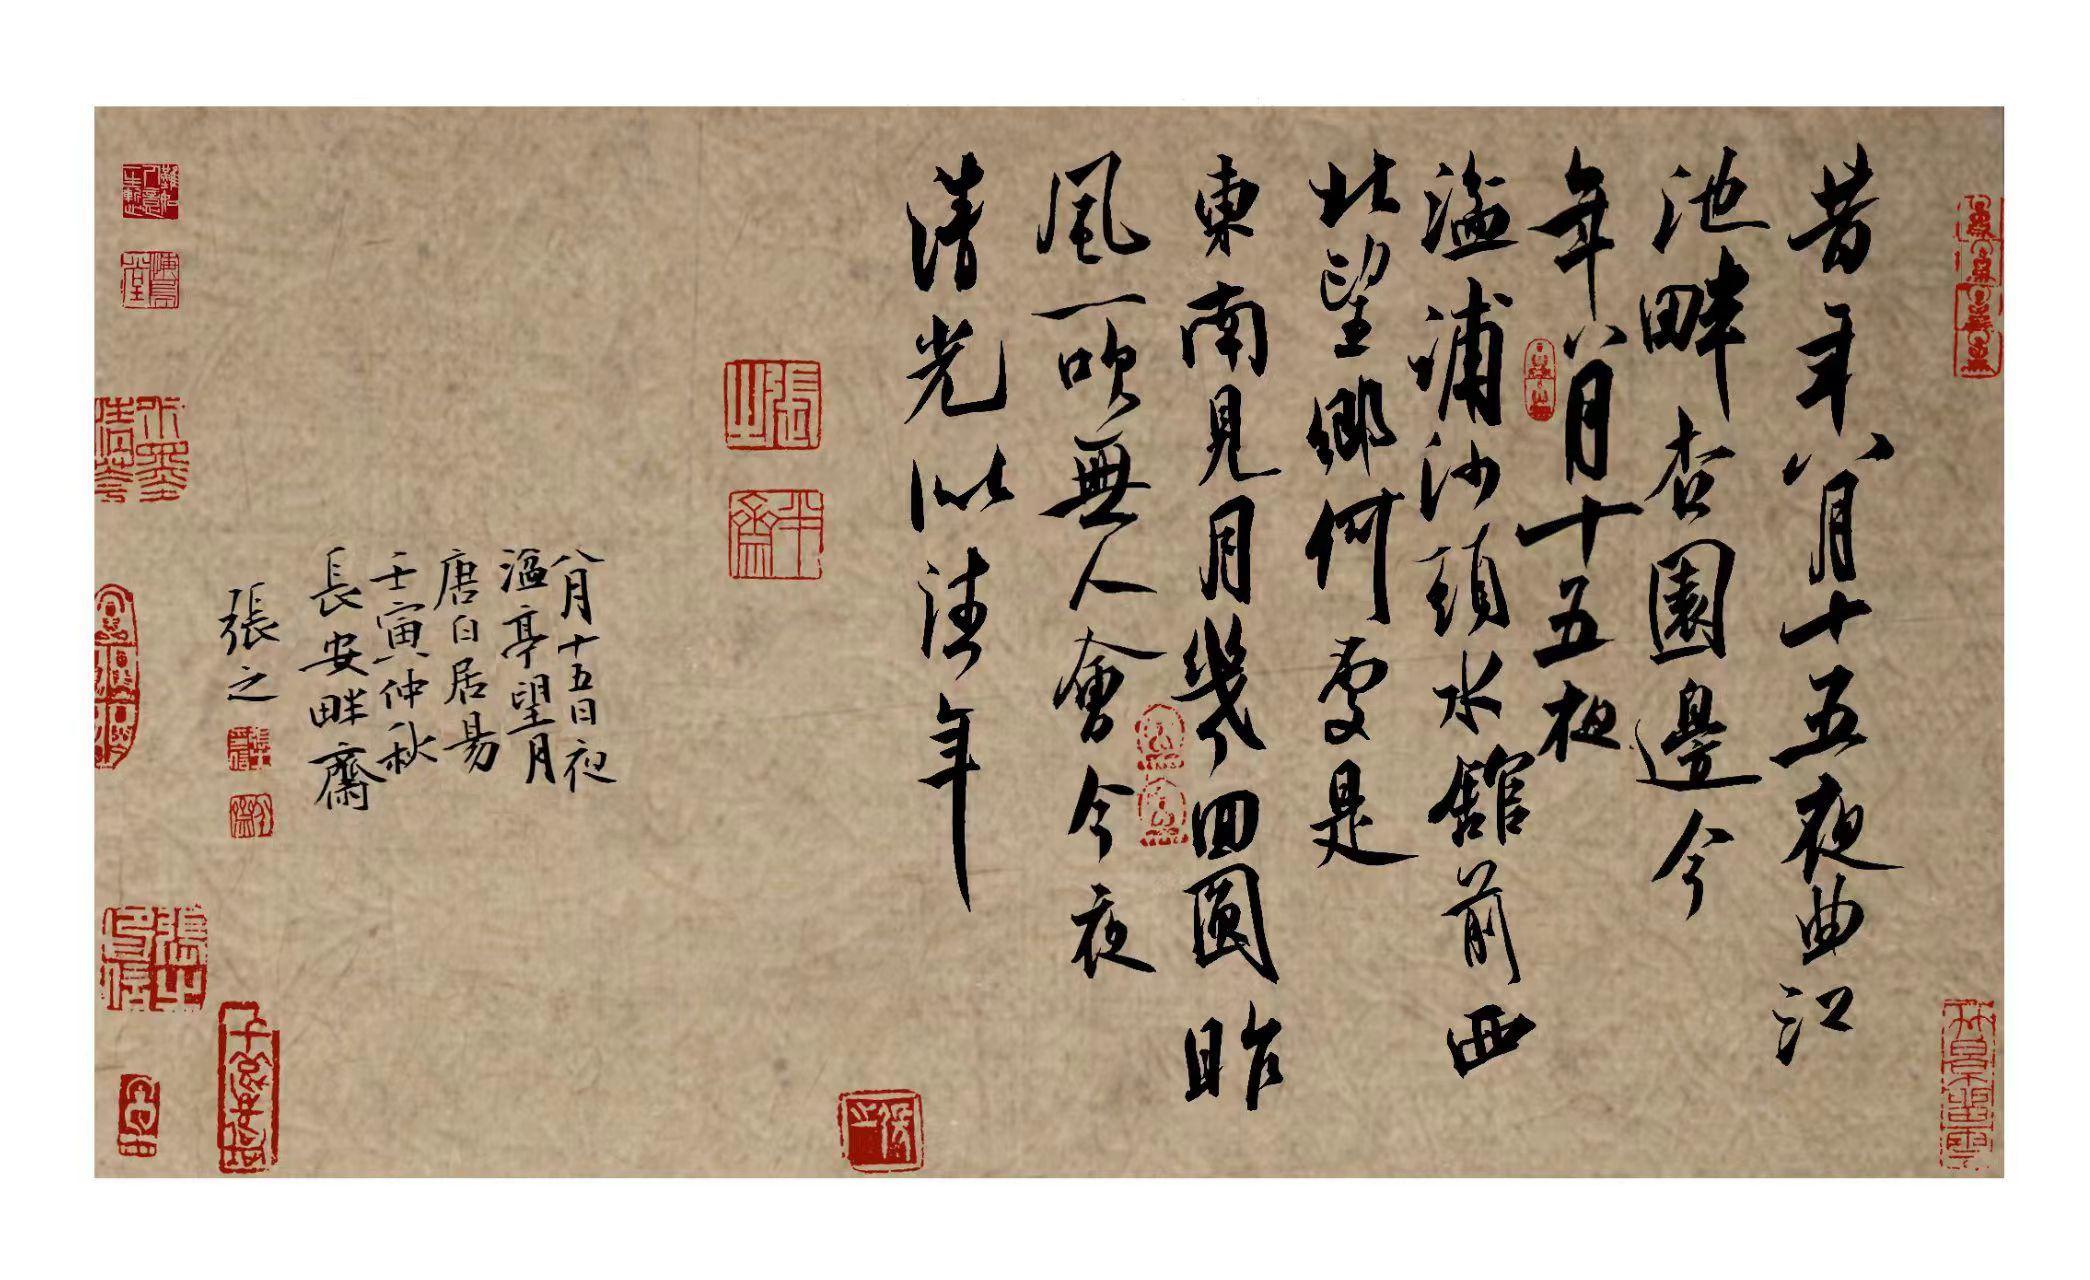 昔年八月十五夜曲江
池畔杏園邊今
年八月十五夜
湓浦沙頭水館前西
北望鄉何處是
東南見月幾回圓昨
風一吹無人會今夜
清光似往年
八月十五日夜
湓亭望月
唐白居易
壬寅仲秋
長安畔齋
張之
張之
半齋